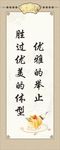 优雅的举止
胜过优美的体型